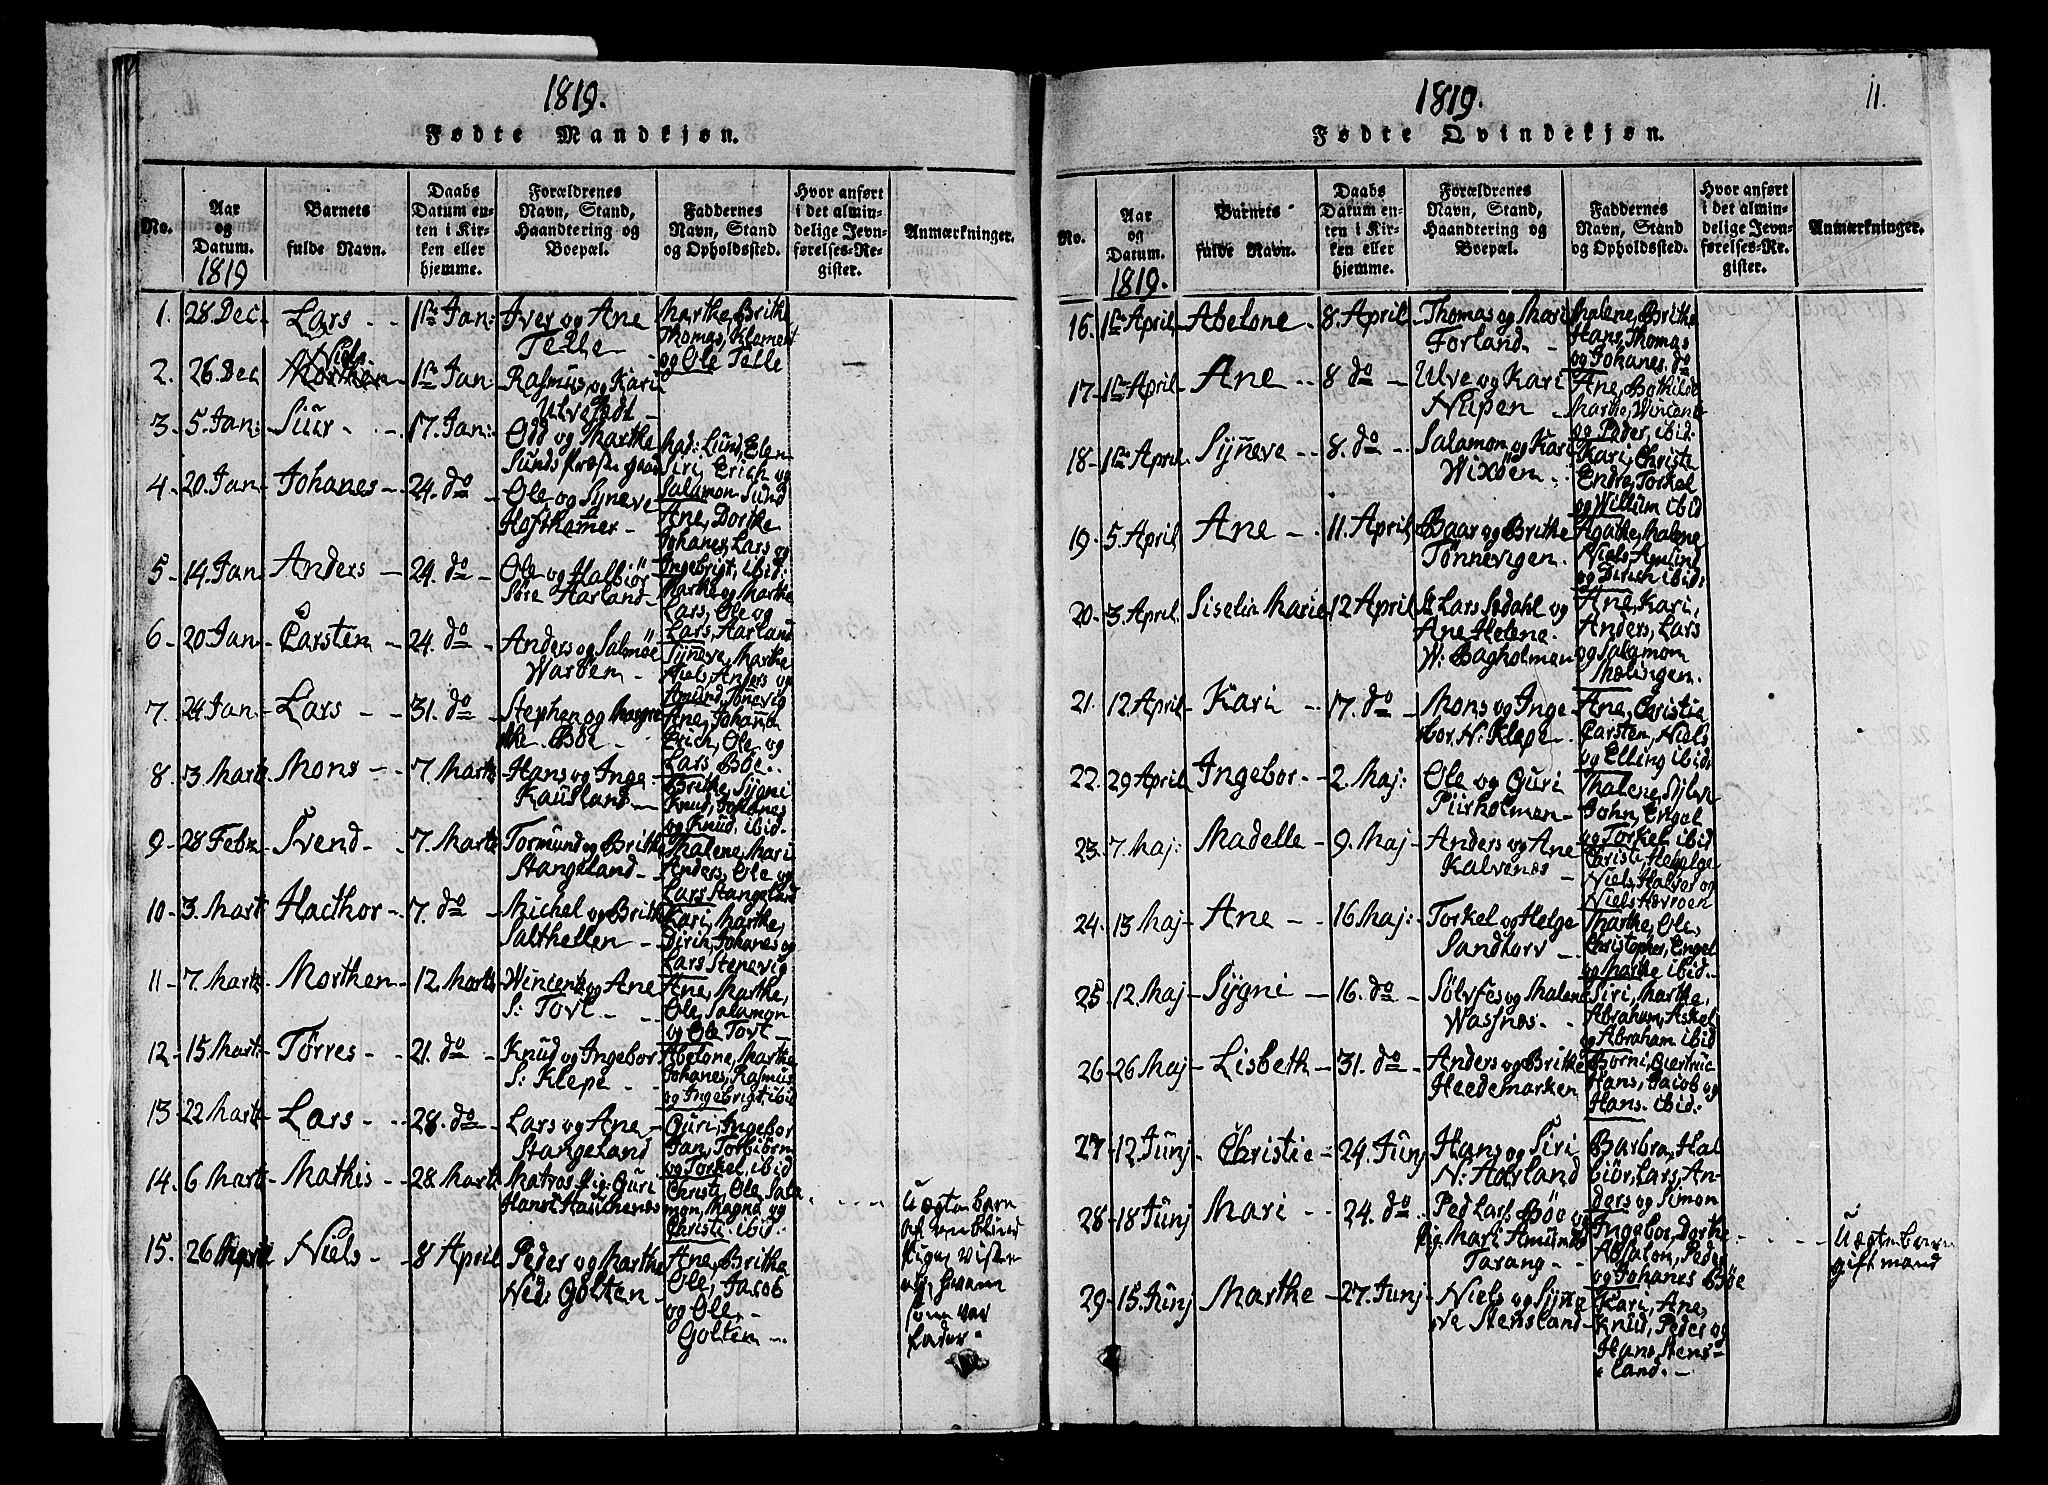 1819.
Fødte Mandkjøn.
No.
Aar
og
Datum.
1819
Barnets
fulde Navn.
Daabs
Datum en-
ten i Kir-
ken eller
hjemme.
Forældrenes
Navn, Stand,
Haandtering og
Boepæl.
Faddernes
Navn, Stand
og Opholdssted.
Hvor anført
i det almin-
delige Jevn-
førelses-Re-
gister.
Anmærkninger.
1. 28 Dec. Lars 1ste Jan: Iver og Ane
Telle
Marthe, Brithe
Thomas, Klament
og Ole Telle
2. 26 Dec Niels 1ste Jan Rasmus og Kari
3. 5 Jan: Siur 17 Jan: Odd og Marthe
Mad: Lund, Elen
Siri, Erich og
Salamon Sund
4. 20 Jan Johanes 24. do Ole og Syneve
Hofthamer
Ane, Dorthe
Johanes, Lars og
Ingebrigt, ibid:
5. 14 Jan Anders 24. do Ole og Halbiør
Søre Harland
Marthe og Marthe
Lars, Ole og
Lars, Aarland
6. 20 Jan Carsten 24. do Anders og Salmøe
Warøen
Syneve, Marthe
Niels, Anders og
Amund, Tønevig
7. 24 Jan Lars 31. do Stephen og Margre
the Bøe
Ane, Johana
Erich, Ole og
Lars Bøe.
8. 3 Marti Mons 7 Marti Hans og Inge
Kausland
Brithe, Sygni
Knud, Johanes
og Knud, ibid.
9. 28 Febr. Svend 7 Marti Tormund og Brithe
Stangeland
Malene, Mari
Anders, Ole og
Lars Stangeland
10. 3. Mart Hacthor 7. do Michel og Brithe
Salthellen
Kari, Marthe,
Dirich, Johanes og
Lars Stenevig
11. 7 Mart Morthen 12 Marti Wincentz og Ane
S: Tovt
Ane, Marthe,
Ole, Salamon
og Ole Tovt
12. 15 Mart: Tørres 21. do Knud og Ingebor
S: Klepe
Abelone, Marthe
Johanes, Rasmus
og Ingebrigt, ibid
13. 22 Mart Lars 28. do Lars og Ane
Stangeland
Guri, Ingebor
Jan, Torbiörn
og Torkel, ibid
14. 6 Mart Mathis 28 Mart Matros Pig: Guri
Christi, Ole, Sala
mon, Magna og
Christi ibid.
Uægte barn
som var
fader
15. 26 Niels 8 April Peder og Marthe
Ned: Golten
Ane, Brithe
Ole, Jacob
og Ole
Golten
1819.
11.
Fødte Qvindekjøn.
No.
Aar
og
Datum.
1819.
Barnets
fulde Navn.
Daabs
Datum en-
ten i Kir-
ken eller
hjemme.
Forældrenes
Navn, Stand,
Haandtering og
Boepæl.
Faddernes
Navn, Stand
og Opholdssted.
Hvor anført
i det almin-
delige Jevn-
førelses-Re-
gister.
Anmærkninger.
16. 1ste April Abelone 8. April Thomas og Mari
Forland
Malene, Brithe
Hans, Thomas
og Johanes. do
17. 1ste April Ane 8 do Ulve og Kari
Nupen
Ane, Bothilde
Marthe, Wincent
og Peder, ibid.
18. 1ste April Syneve 8. do Salamon og Kari
Wixøen
Kari, Christi
Endre, Torkel
og Willum ibid
19. 5 April Ane 11 April Baar og Brithe
Tønnevigen.
Agathe, Malene
Niels, Amund
og Dirich ibid:
20. 3 April Siselia Marie 12 April Lars Sødahl og
Ane Helene
W: Bagholmen
Ane, Kari,
Anders, Lars
og Salamon
Møvigen.
21. 12 April Kari 17. do Mons og Inge
bor N: Klepe
Ane, Christie
Carsten, Niels
og Elling ibid.
22. 29 April Ingebor 2 Maj: Ole og Guri
Piirholmen
Malene, Sylve
John, Engel
og Torkel ibid
23. 7 Maj: Madelle 9. Maj Anders og Ane
Kalvenes
Christi, Helge
Niels, Halver og
Niels Hevrøen
24. 13 Maj Ane 16 Maj: Torkel og Helge
Sandtorv
Marthe, Ole,
Christopher, Engel
og Marthe ibid.
25 12 Maj Sygni 16. do Sølvfes og Malene
Wasnes
Siri, Marthe,
Abraham, Askel
og Abraham ibid
26 26 Maj Lisbeth 31. do Anders og Brithe
Heedemarken
Borni, Giertrue
Hans, Jacob og
Hans. ibid:
27 12 Junj Christie 24 Junj Hans og Siri
N: Aarland
Barbra, Hal
biör, Lars, An-
ders og Simon
28 18 Junj Mari 24. do Ped Lars Bøe og
Pig. Mari Amunds
Tarang
Ingebor, Dorthe
Absalon, Peder
og Johanes Bøe
Uægte barn
gift mand
29 15 Junj Marthe 27 Junj Niels og Syne
ve Stensland
Kari, Ane,
Knud, Peder og
Hans, Stens-
land.